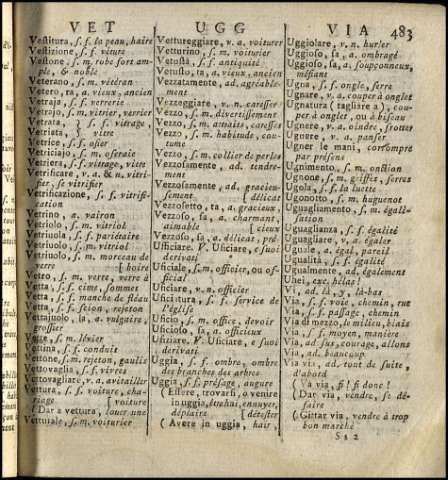 VET
UGG
VIA
483
Vestitura, s. f. la peau, haire
Vestizione, s. f. vêture
Vestone, s. m. robe fort am-
ple, & noble
Veterano, s. m. vétéran
Vetero, ra, a. vieux, ancien
Vetraja, s. f. verrerie
Vetrajo, s. m. vitrier, verrier
Vetrata, } s. f. vitrage,
Vetriata, } vitre
Vetrice, s. f. osier
Vetriciajo, s. m. oseraie
Vetriera, s. f. vitrage, vitre
Vetrificare, v. a. & n. vitri-
fier, se vitrifier
Vetrificazione, s. f. vitrifi-
cation
Vetrino, a. vairon
Vetriolo, s. m. vitriol
Vetriuola, s. f. pariétaire
Vetriuolo, s. m. vitriol
Vetriuolo, s. m. morceau de
verre [ boire
Vetro, s. m. verre, verre à
Vetta, s. f. cime, sommet
Vetta, s. f. manche de fléau
Vetta, s. f. scion, rejeton
grossier
s. m. levier
s. f. conduit
Vettone, s. m. rejeton, gaulis
Vettovaglia, s. f. vivres
Vettovagliare, v. a. avitailler
Vettura, s. f. voiture, cha-
riage [ voiture
( Dar a vettura, louer une
Vetturale, s. m. voiturier
Vettureggiare, v. a. voiturer
Vetturino, s. m. voiturier
Vetustà, s. f. antiquité
Vetusto, ta, a. vieux, ancien
Vezzatamente, ad. agréable-
ment
Vezzeggiare, v. n. caresser
Vezzo, s. m. divertissement
Vezzo, s. m. attraits, caresses
Vezzo, s. m. habitude, cou-
tume
Vezzo, s. m. collier de perles
Vezzosamente, ad. tendre-
ment
Vezzosamente, ad. gracieu-
sement [ délicat
Vezzosetto, ta, a. gracieux,
Vezzoso, sa, a. charmant,
aimable [ cieux
Vezzoso, sa, a. délicat, pré-
Usficiare. V. Ufficiare, e suoi
derivati.
Ufficiale, s. m. officier, ou of-
ficial
Ufficiare, v. n. officier
Ufficiatura, s. f. service de
l'église
Ufficio, s. m. office, devoir
Ufficioso, sa, a. officieux
Ufiziare. V. Ufficiare, e suoi
derivati.
Uggia, s. f. ombre, ombre
des branches des arbres
Uggia, s. f. présage, augure
( Essere, trovarsi, o venire
in uggia, être haï, ennuyer,
déplaire [ détester
( Avere in uggia, haïr,
Uggiolare, v. n. hurler
Uggioso, sa, a. ombragé
Uggioso, sa, a. soupçonneux,
méfiant
Ugna, s. f. ongle, serre
Ugnare, v. a. couper à onglet
Ugnatura ( tagliare a ), cou-
per à onglet, ou à biseau
Ugnere, v. a. oindre, frotter
Ugnere, v. a. panser
Ugner le mani, corrompre
par présens
Ugnimento, s. m. onction
Ugnone, s. m. griffes, serres
Ugola, s. f. la luette
Ugonotto, s. m. huguenot
Uguagliamento, s. m. égali-
sation
Uguaglianza, s. f. égalité
Uguagliare, v. a. égaler
Uguale, a. égal, pareil
Ugualità, s. f. égalité
Ugualmente, ad. également
Uhei, ahi, hélas!
Vi, ad. là, y, là-bas
Via, s. f. voie, chemin, rue
Via, s. f. passage, chemin
Via di mezzo, le milieu, biais
Via, s. f. moyen, maniere
Via, ad. sus, courage, allons
Via, ad. beaucoup
Via via, ad. tout de suite,
d'abord
( Va via, fi! fi donc!
( Dar via, vendre, se dé-
faire
( Gittar via, vendre à trop
bon marché
Ss 2